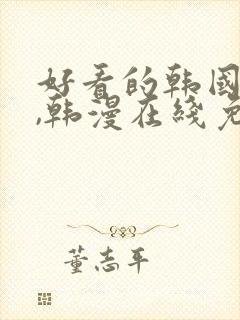 好看的韩国
,韩漫在线免
董志平